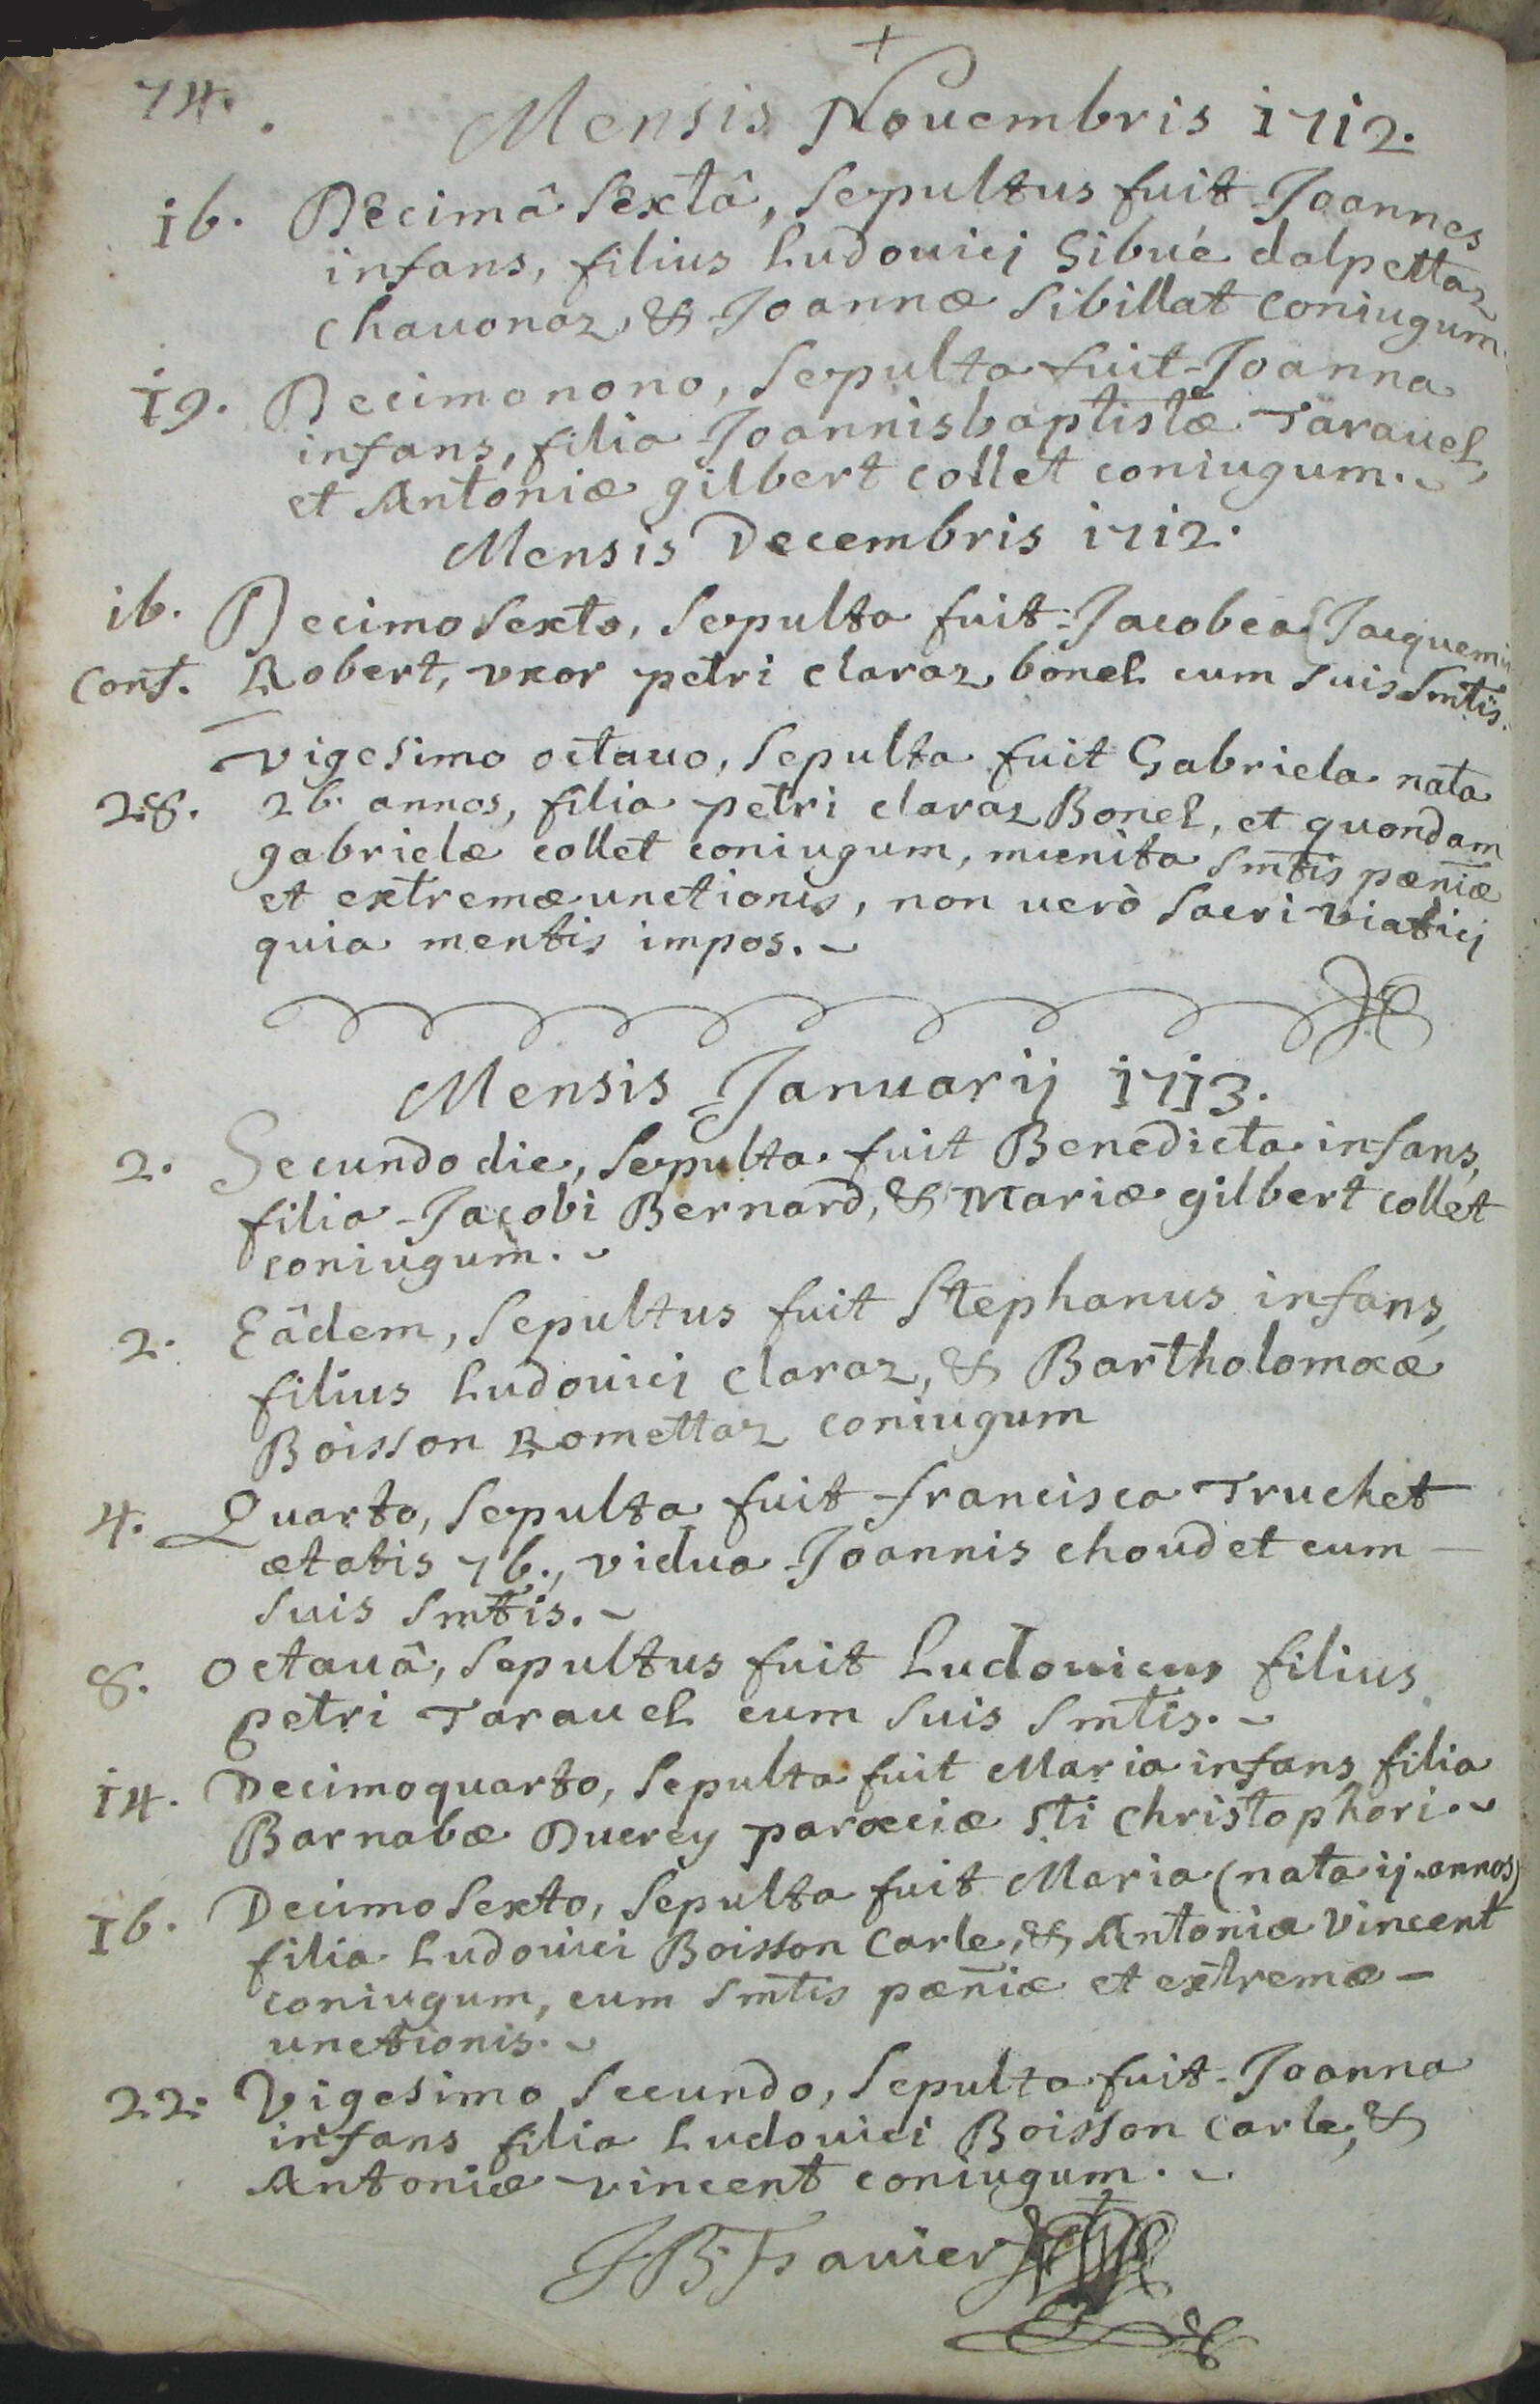 +
74.
Mensis Nouembris 1712.
16. Decimâ Sextâ, Sepultus fuit Joannes
infans, filius Ludouicj Gibué dalpettaz
chauonaz & Joannæ Sibillat coniugum.
19. Decimonono, Sepulta fuit Joanna
infans, filia Joannisbaptistæ Tarauel,
et Antoniæ gilbert collet coniugum.
Mensis Decembris 1712.
16. Decimo Sexto, Sepulta fuit Jacobea
Conf. Robert, vxor petri claraz bonel cum Suis Smtis.
Vigesimo octauo, Sepulta fuit Gabriela nata
28. 26. annos, filia petri claraz Bonel, et quondam
gabrielæ collet coniugum, munita Smtis pœniæ
et extremæ unctionis, non uerò Sacri viaticj
quia mentis impos.
Mensis Januarij 1713.
2. Secundo die, Sepulta fuit Benedicta infans,
filia Jacobi Bernard, & Mariæ gilbert collet
coniugum.
2. Eâdem, Sepultus fuit Stephanus infans,
filius Ludouicj claraz, & Bartholomææ
Boisson Romettaz coniugum
4. Quarto, Sepulta fuit francisca Truchet
ætatis 76., vidua Joannis choudet cum
Suis Smtis.
8. Octauâ, Sepultus fuit Ludouicus filius
petri Tarauel cum Suis Smtis.
14. Decimoquarto, Sepulta fuit Maria infans filia
Barnabæ Ducrey parœciæ Sti Christophori.
16. Decimo Sexto, Sepulta fuit Maria (nata ij annos)
filia Ludouici Boisson Carle, & Antoniæ Vincent
coniugum, cum Smtis pœniæ et extremæ
unctionis.
22. Vigesimo Secundo, Sepulta fuit Joanna
infans filia Ludouici Boisson Carle, &
Antoniæ vincent coniugum.